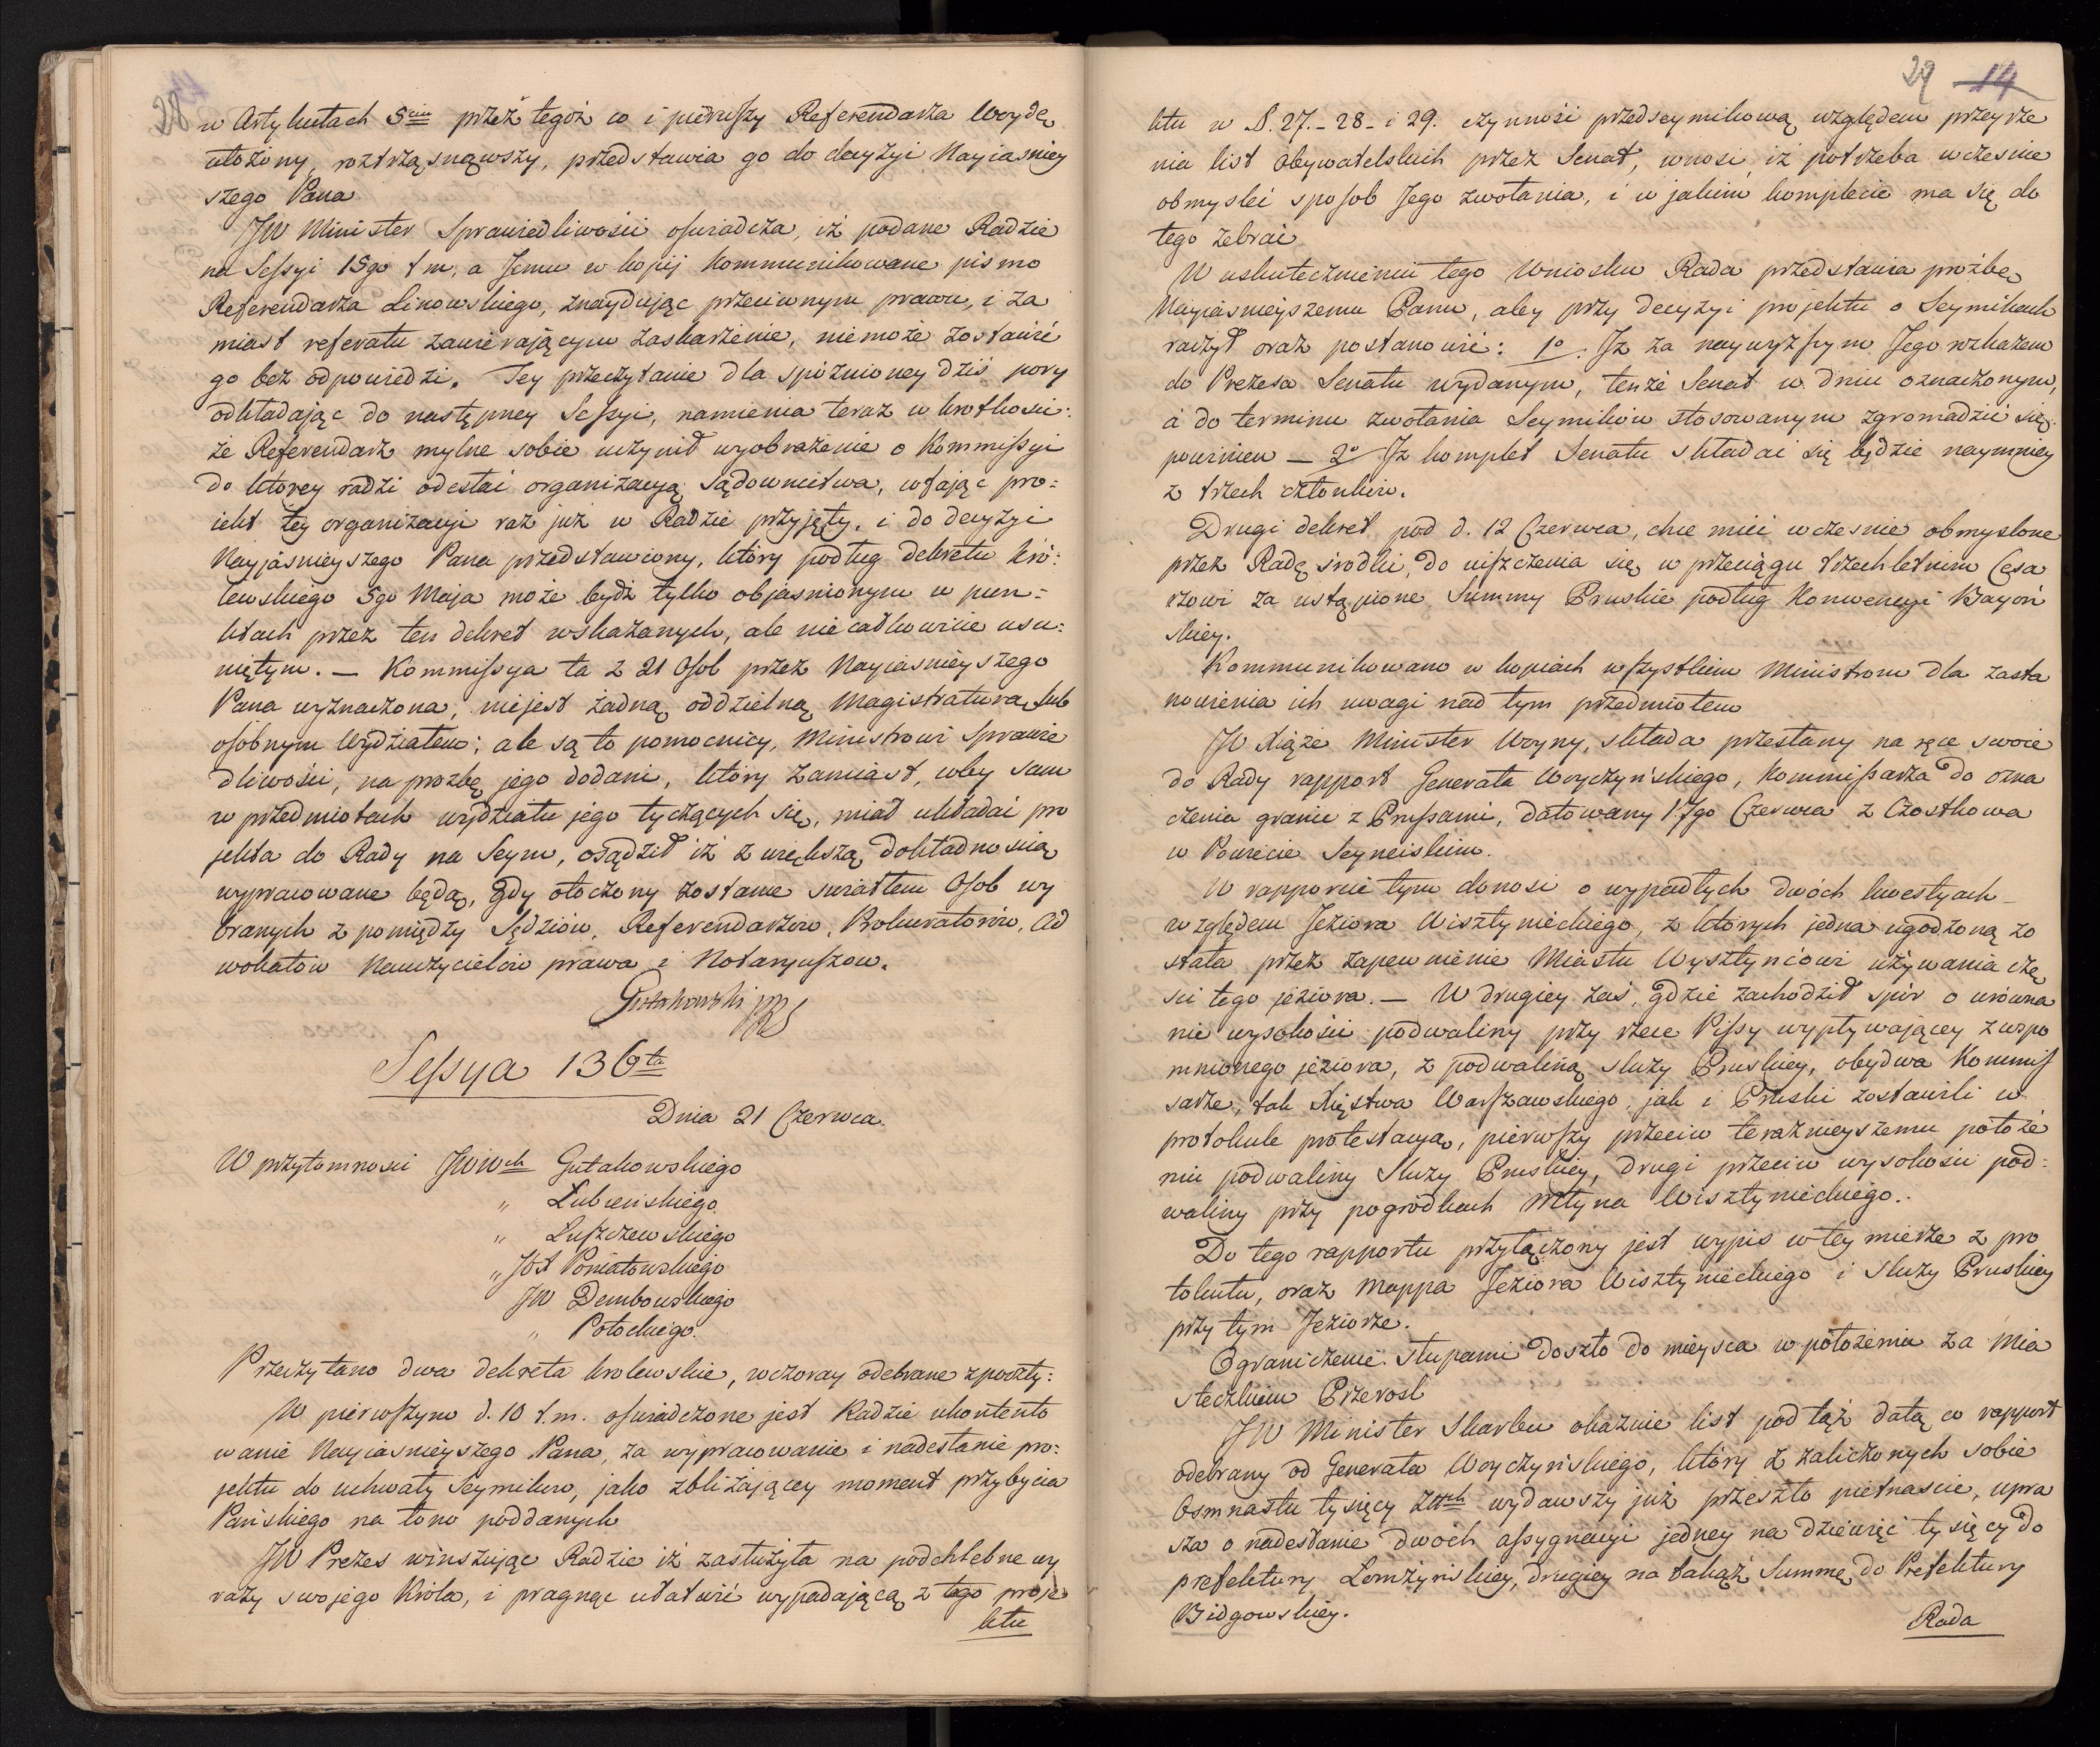 28
w Artykułach 5ciu przez tegoż co i pierwszy Referendarza Woydę
ułożony, roztrząsnąwszy, przedstawia go do decyzyi Nayiasniey
szego Pana
JW Minister Sprawiedliwości oświadcza, iż podane Radzie
na Sessyi 15go t m, a Jemu w kopij kommunikowane pismo
Referendarza Linowskiego, znayduiąc przeciwnym prawu, i za
miast referatu zawieraiącym zaskarżenie, niemoże zostawić
go bez odpowiedzi. Jey przeczytanie dla spóźnioney dziś pory
odkładając do następney Sessyi, namienia teraz w krotkości:
że Referendarz mylne sobie uczynił wyobrażenie o Kommissyi
do ktorey radzi odesłać organizacyą Sądownictwa, cofając pro=
iekt tey organizacyi raz już w Radzie przyjęty, i do decyzyi
Nayjaśnieyszego Pana przedstawiony, który podług dekretu Kró=
lewskiego 5go Maja może bydź tylko objasnionym w pun=
ktach przez ten dekret wskazanych, ale nie całkowicie usu=
niętym. — Kommissya ta z 21 Osob przez Nayiasnieyszego
Pana wyznaczona, niejest żadną oddzielną Magistraturą, lub
osobnym Wydziałem; ale są to pomocnicy, Ministrowi Sprawie
dliwości, na prozbę jego dodani, który zamiast, coby sam
w przedmiotach wydziału jego tyczących się, miał układać pro
jekta do Rady na Seym, osądził iż z większą dokładnością
wypracowane będą, gdy otoczony zostanie swiatłem Osob wy
branych z pomiędzy Sędziów, Referendarzow, Prokuratorów, Ad
wokatow Nauczycielow prawa i Notaryuszow.
Gutakowski
Sessya 136ta
Dnia 21 Czerwca.
W przytomnosci JWWch Gutakowskiego
" Łubienskiego
" Łuszczewskiego
" JOX Poniatowskiego
JW Dembowskiego
" Potockiego.
Przeczytano dwa dekreta krolewskie, wczoray odebrane z poczty:
W pierwszym d. 10 t. m. oświadczone jest Radzie ukontento
wanie Nayiasnieyszego Pana, za wypracowanie i nadesłanie pro=
jektu do uchwały Seymikow, jako zbliżaiącey moment przybycia
Pańskiego na łono poddanych
JW Prezes winszując Radzie iż zasłużyła na podchlebne wy
razy swojego Króla, i pragnąc ułatwić wypadającą z tego proje
ktu
29 14
ktu w §. 27. - 28 - i 29. czynności przedseymikową względem przeyrze
nia list Obywatelskich przez Senat, wnosi, iż potrzeba wczesnie
obmyslić sposob Jego zwołania, i w jakim komplecie ma się do
tego zebrać
W uskutecznieniu tego Wniosku Rada przedstawia prozbę
Nayiasnieyszemu Panu, aby przy decyzyi projektu o Seymikach
raczył oraz postanowić: 1o. Iż za naywyzszym Jego rozkazem
do Prezesa Senatu wydanym, tenże Senat w dniu oznaczonym,
á do terminu zwołania Seymików stosowanym zgromadzić się
powinien — 2o Iż komplet Senatu składać się będzie naymniey
z trzech członkow.
Drugi dekret pod d. 12 Czerwca, chce mieć wczesnie obmyslone
przez Radę środki, do uiszczenia się w przeciągu trzechletnim Cesa
rzowi za ustąpione Summy Pruskie podług Konwencyi Bayoń
skiey.
Kommunikowano w kopiach wszystkim Ministrom dla zasta
nowienia ich uwagi nad tym przedmiotem
JO Xiąże Minister Woyny, składa przesłany na ręce swoie
do Rady rapport Generała Woyczyńskiego, Kommissarza do ozna
czenia granic z Prussami, datowany 17go Czerwca z Czostkowa
w Powiecie Seyneiskim.
W rapporcie tym donosi o wypadłych dwóch kwestyach
względem Jeziora Wisztynieckiego, z których jedna ugodzoną zo
stała przez zapewnienie Miastu Wysztyńcowi używania czę
sci tego jeziora. — W drugiey zaś, gdzie zachodził spór o urówna
nie wysokości podwaliny przy rzece Pissy wypływającey z wspo
mnionego jeziora, z podwaliną sluzy Pruskiey, obydwa Kommis
sarze, tak Xięstwa Warszawskiego, jak i Pruski zostawili w
protokule protestacyą, pierwszy przeciw terazniejszemu położe
niu podwaliny Sluzy Pruskiey, drugi przeciw wysokości pod=
waliny przy pogrodkach Młyna Wisztynieckiego.
Do tego rapportu przyłączony jest wypis w tey mierze z pro
tokułu, oraz Mappa Jeziora Wisztynieckiego i Sluzy Pruskiey
przy tym Jeziorze.
Ograniczenie słupami doszło do mieysca w położeniu za Mia
steczkiem Przerosl
JW Minister Skarbu okazuie list pod tąż datą co rapport
odebrany od Generała Woyczyńskiego, który z zaliczonych sobie
Osmnastu tysięcy Złłch wydawszy już przeszło pietnascie, upra
sza o nadesłanie dwoch assygnacyi jedney na dziewięć tysięcy do
prefektury Łomżyńskiey, drugiey na takąż Summę do Prefektury
Bidgowskiey.
Rada